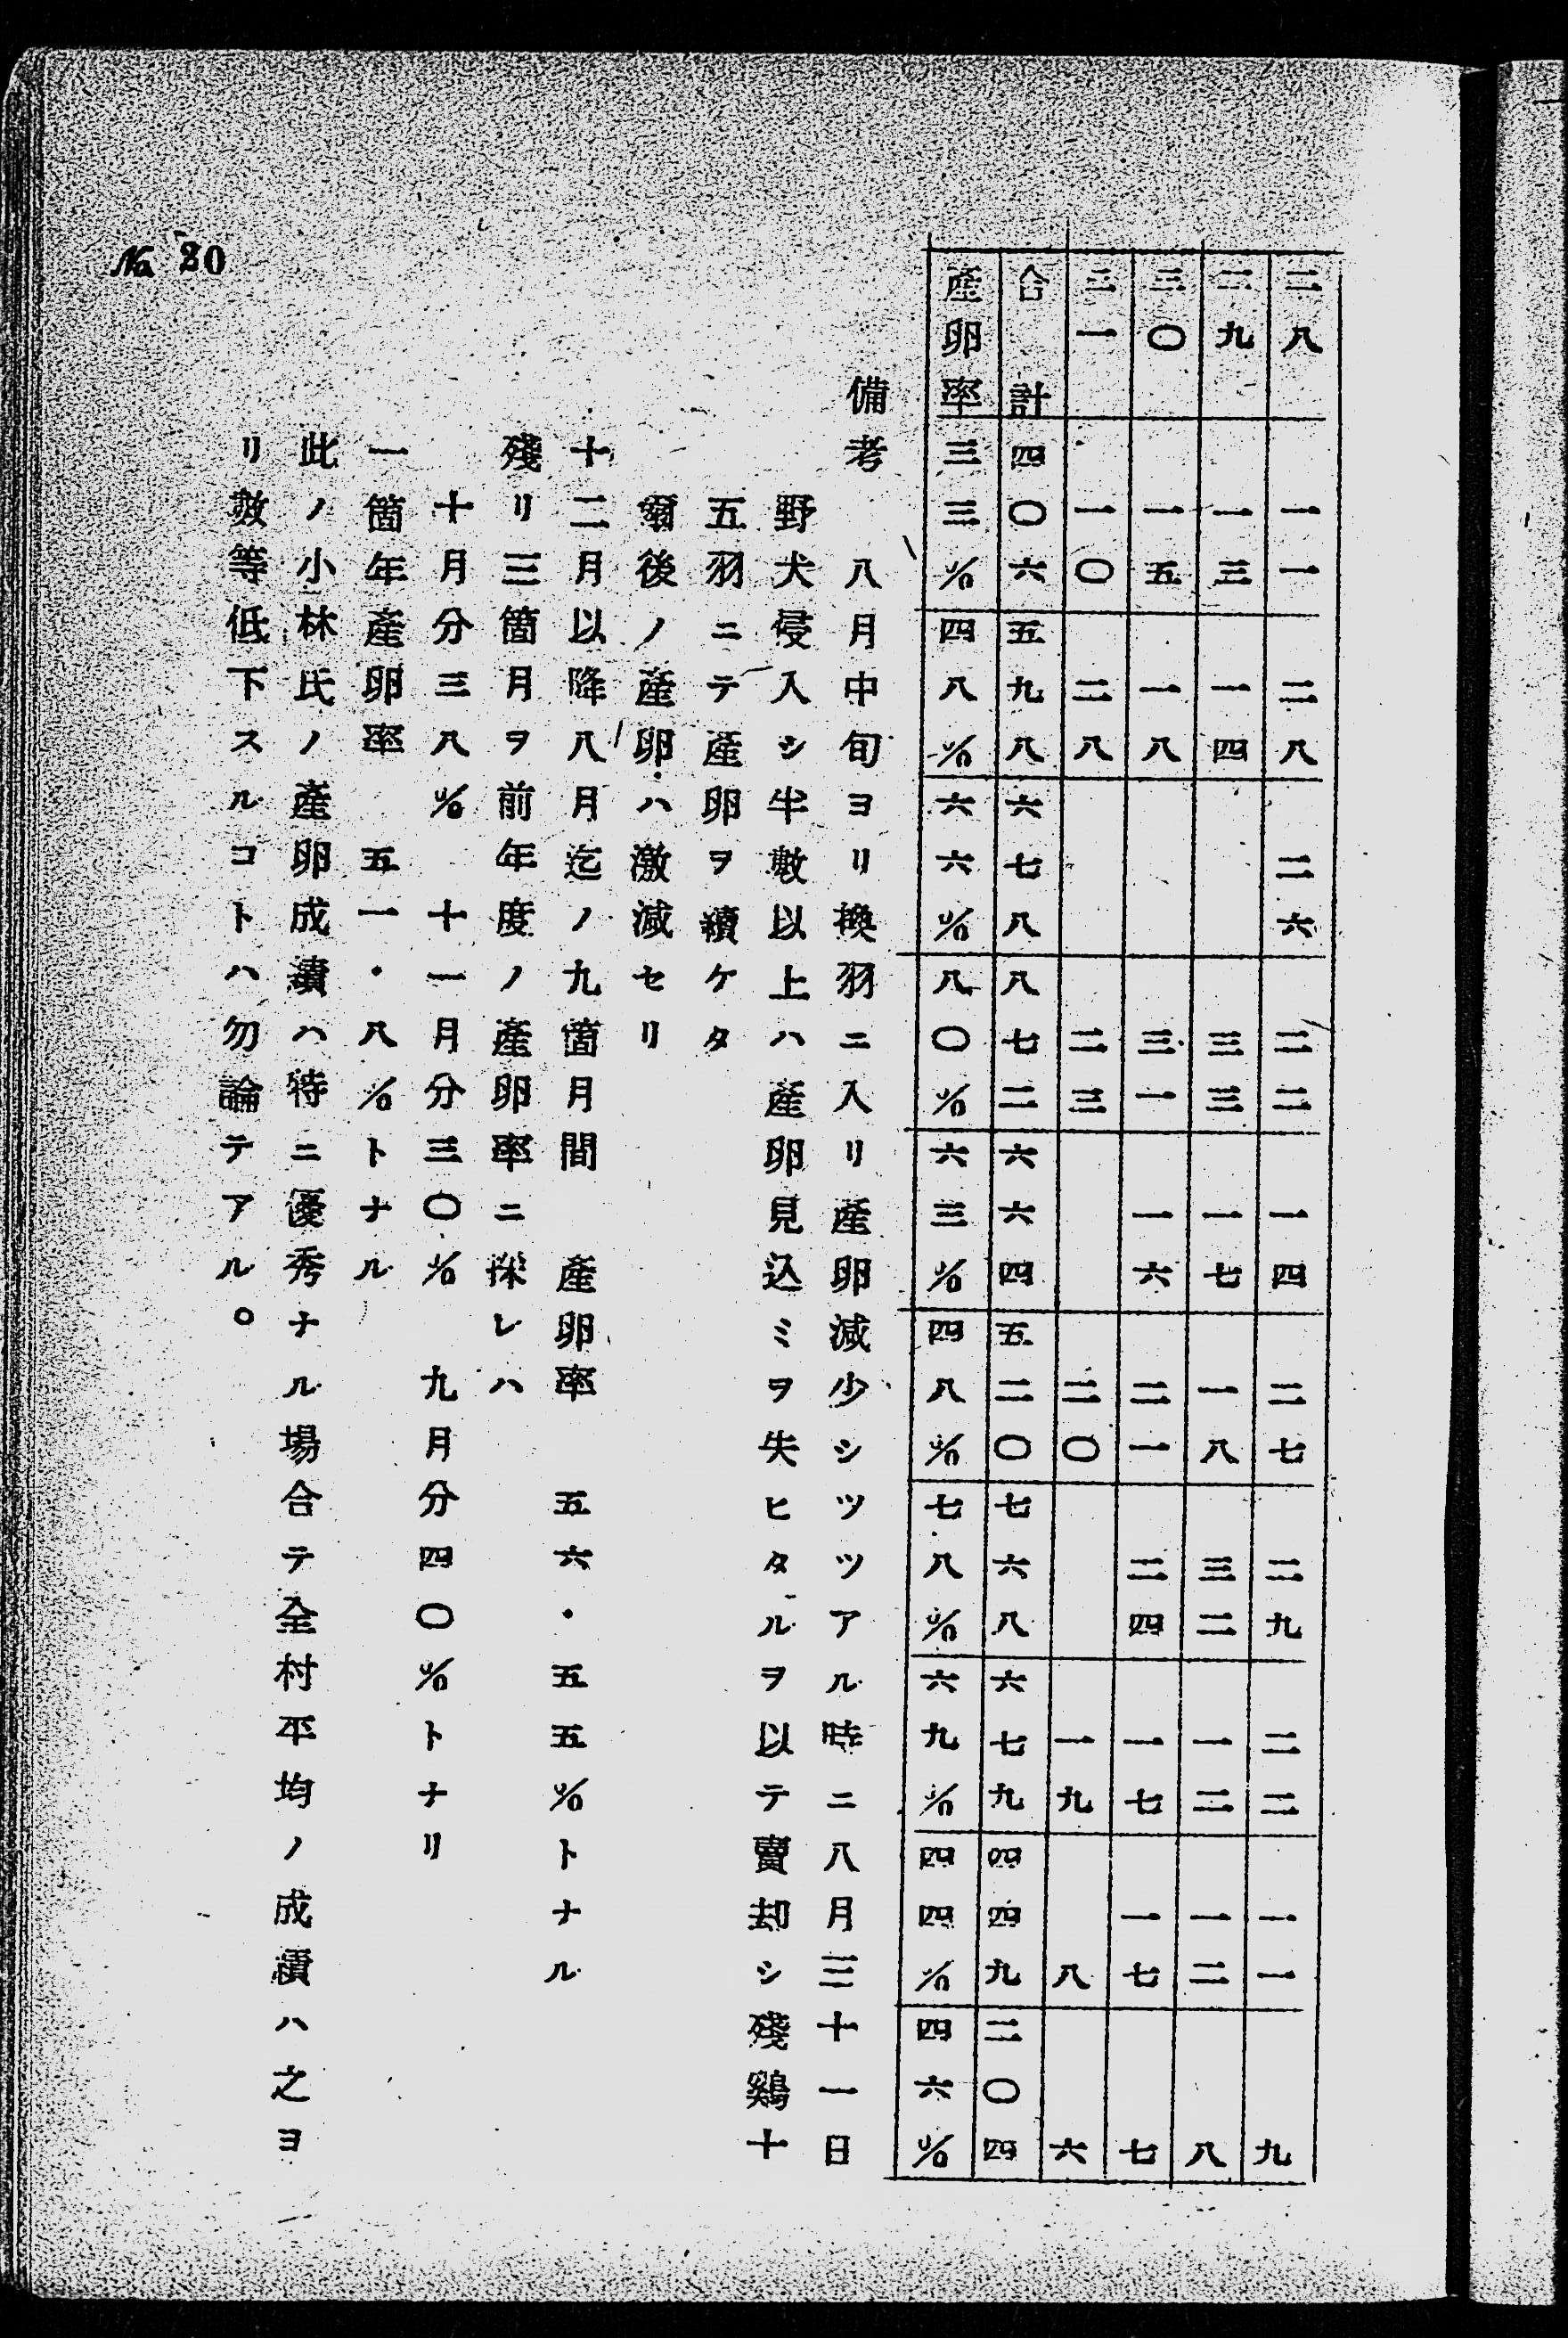 二八 一一 二八 二六 二二 一四 二七 二九 二二 一一 九
二九 一三 一四 三三 一七 一八 三二 一二 一二 八
三〇 一五 一八 三一 一六 二一 二四 一七 一七 七
三一 一〇 二八 二三 二〇 一九 八 六
合計 四〇六 五九八 六七八 八七二 六六四 五二〇 七六八 六七九 四四九 二〇四
產卵率 三三% 四八% 六六% 八〇% 六三% 四八% 七八% 六九% 四四% 四六%
備考 八月中旬ヨリ換羽ニ入リ產卵減少シツツアル時ニ八月三十一日
野犬侵入シ半數以上ハ產卵見込ミヲ失ヒタルヲ以テ賣却シ殘鷄十
五羽ニテ產卵ヲ續ケタ
爾後ノ產卵ハ激減セリ
十二月以降八月迄ノ九箇月間 產卵率 五六・五五%トナル
殘リ三箇月ヲ前年度ノ產卵率ニ採レハ
十月分三八% 十一月分三〇% 九月分四〇%トナリ
一箇年產卵率 五一・八%トナル
此ノ小林氏ノ產卵成績ハ特ニ優秀ナル場合テ全村平均ノ成績ハ之ヨ
リ數等低下スルコトハ勿論テアル。
No 20